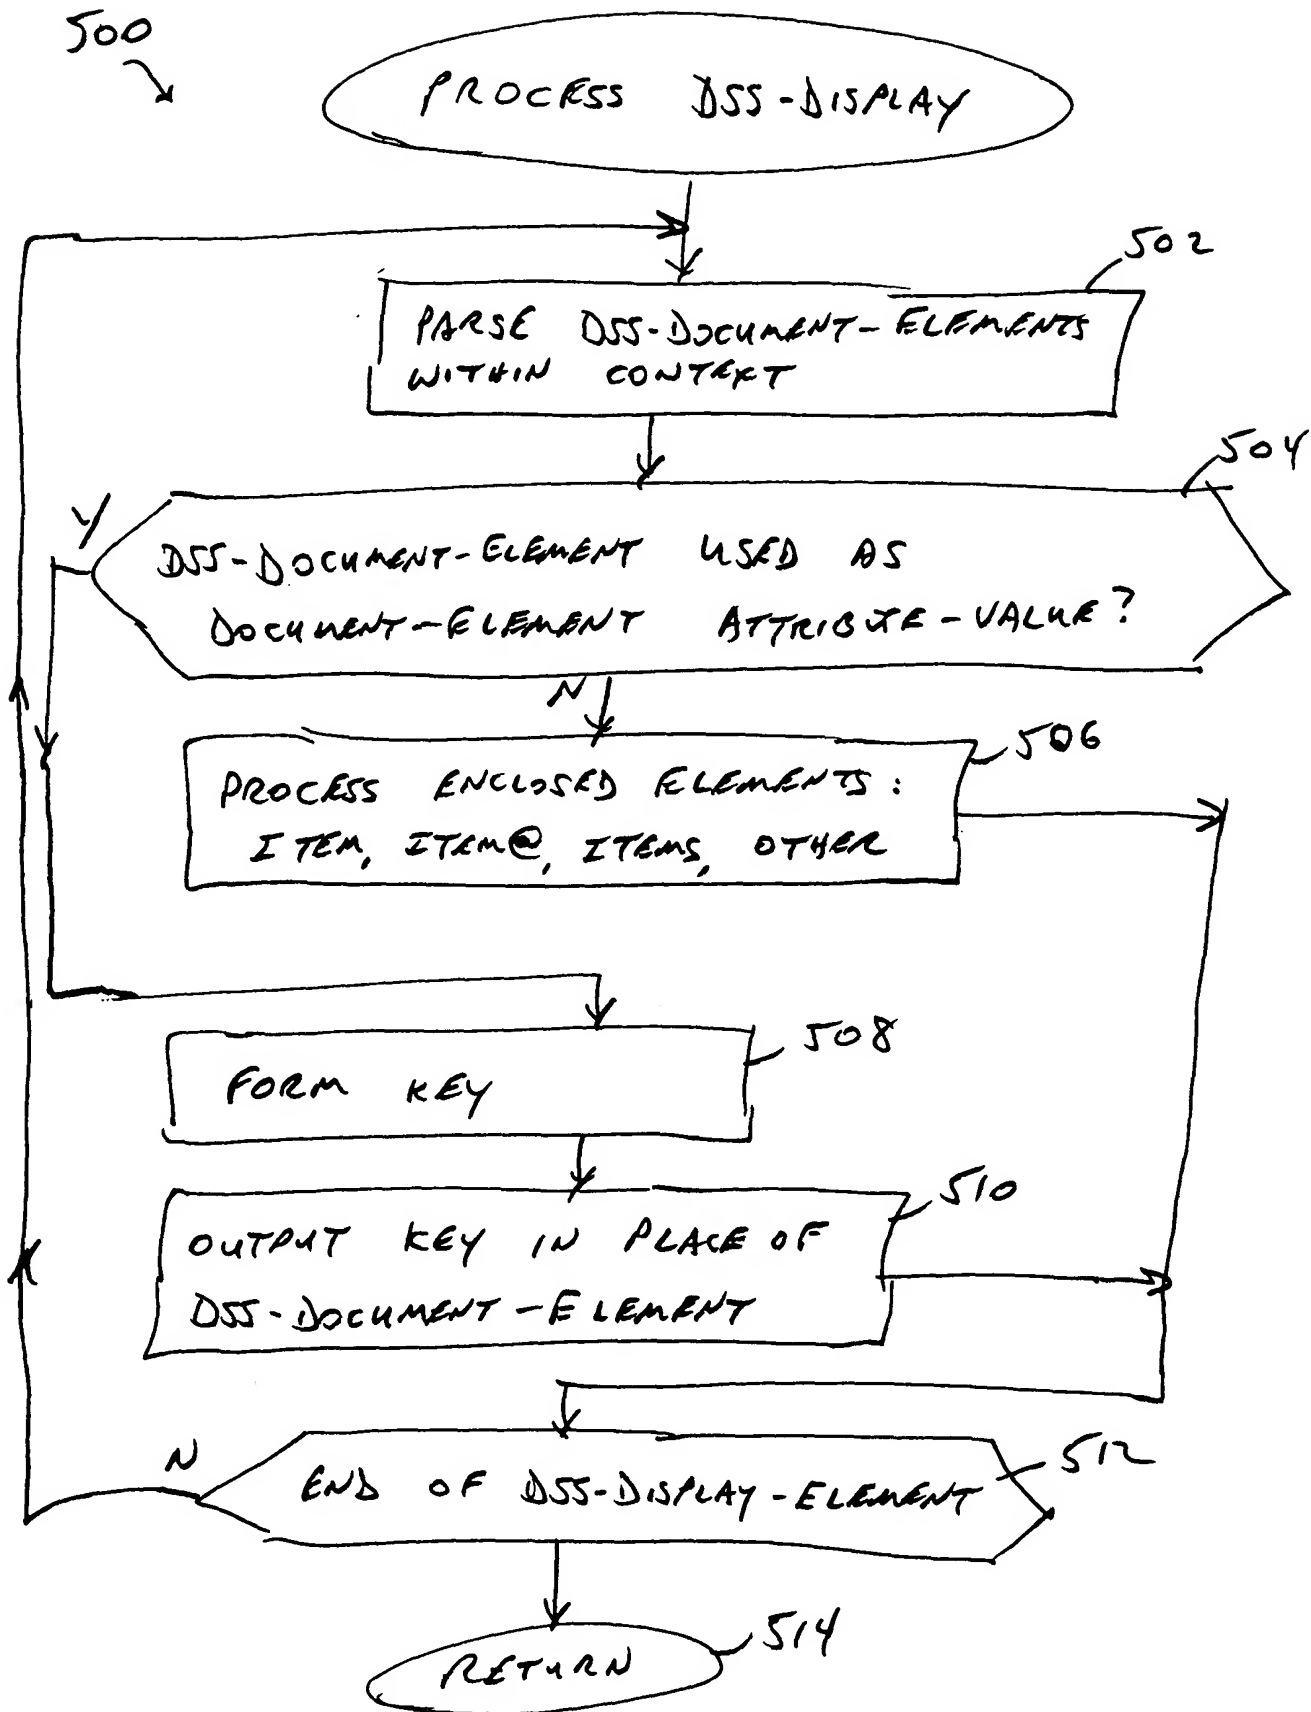 500
PROCESS DSS-DISPLAY
502
PARSE DSS-DOCUMENT-ELEMENTS
WITHIN CONTEXT
504
Y
DSS-DOCUMENT-ELEMENT USED AS
DOCUMENT-ELEMENT ATTRIBUTE-VALUE?
N
506
PROCESS ENCLOSED ELEMENTS:
ITEM, ITEM@, ITEMS, OTHER
508
FORM KEY
510
OUTPUT KEY IN PLACE OF
DSS-DOCUMENT-ELEMENT
N
512
END OF DSS-DISPLAY-ELEMENT
514
RETURN